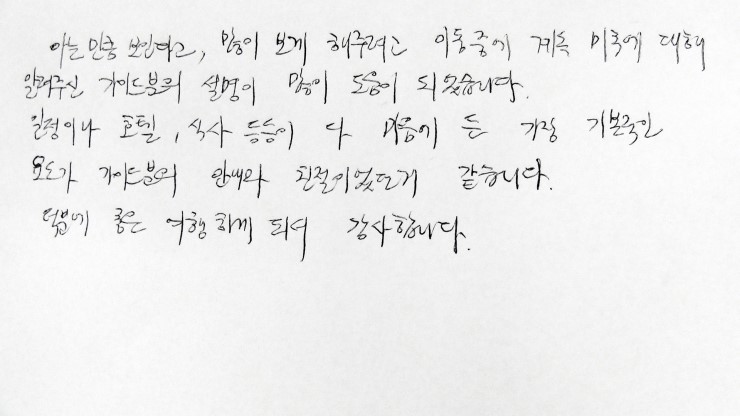 아는 만큼 보인다고, 많이 보게 해주려고 이동중에 계속 미국에 대해
알려주신 가이드분의 설명이 많이 도움이 되었습니다.
일정이나 호텔, 식사 등등이 다 마음에 든 가장 기본적인
요소가 가이드분의 안내와 친절이었던거 같습니다.
덕분에 좋은 여행 하게 되어 감사합니다.